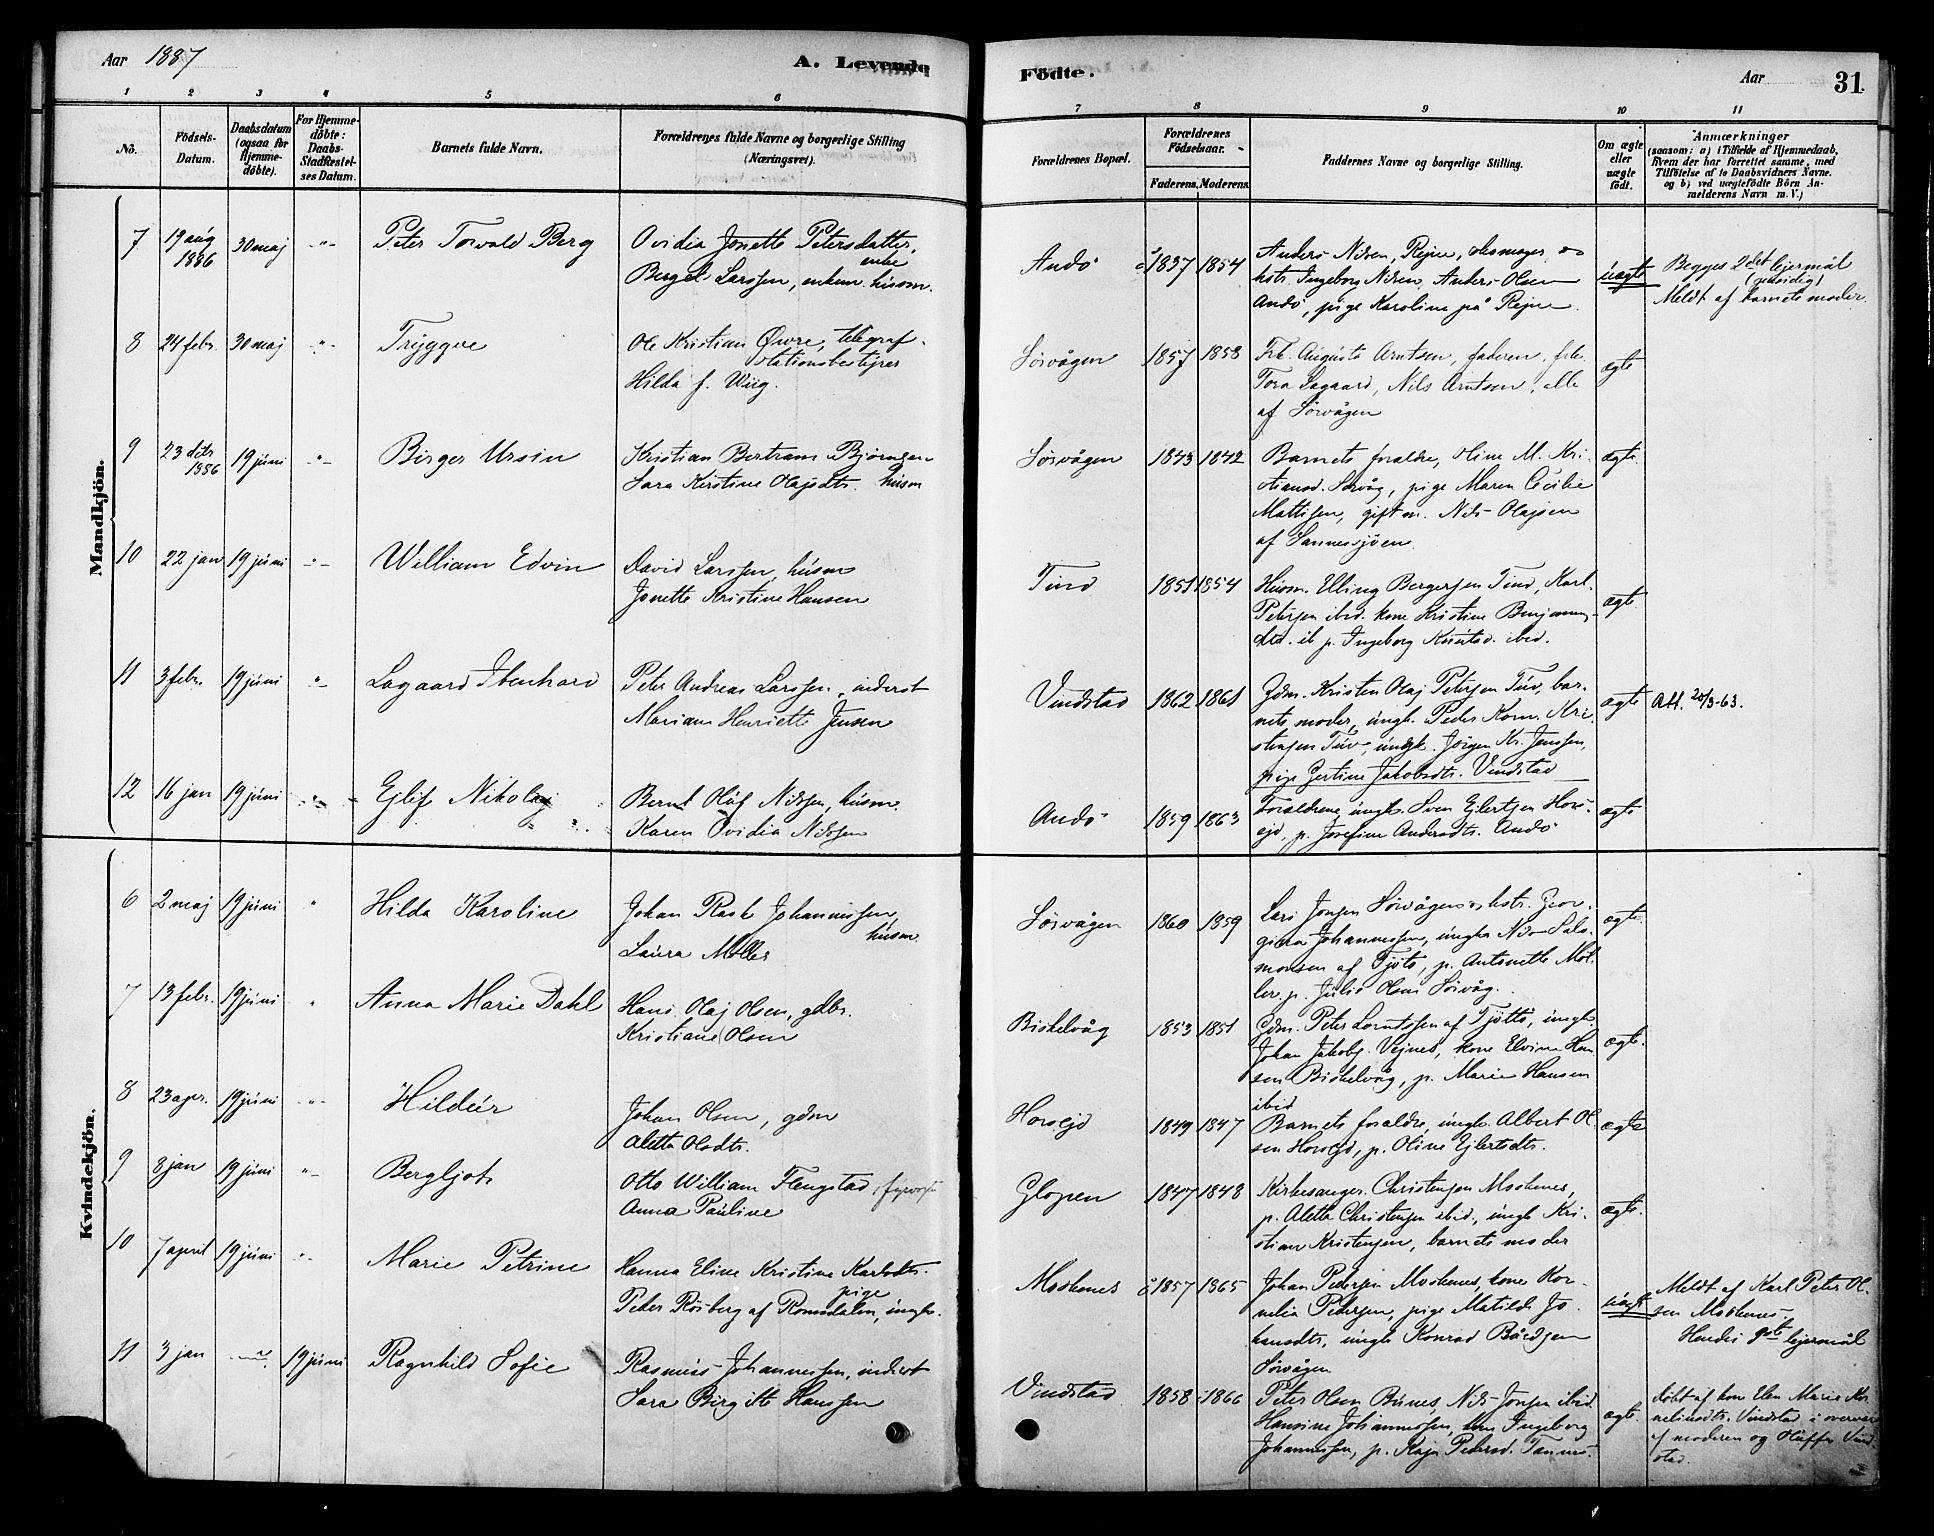 Aar 1887
A. Levende
Födte.
Aar
31
1 2 3 4 5 6 7 8 9 10 11
No.
Födsels-Datum.
Daabsdatum (ogsaa for Hjemme-döbte).
For Hjemme-döbte: Daabs-Stadfæstel-ses Datum.
Barnets fulde Navn.
Forældrenes fulde Navne og borgerlige Stilling (Næringsvei).
Forældrenes Bopæl.
Forældrenes Födselsaar.
Faderens. Moderens.
Faddernes Navne og borgerlige Stilling.
Om ægte eller uægte födt.
Anmærkninger
(saasom: a) i Tilfælde af Hjemmedaab, Hvem der har forrettet samme, med Tilföielse af to Daabsvidners Navne. og b) ved uægtefödte Börn Anmelderens Navn m. V.)
Mandkjön.
7 19 aug 1886 30 maj -"- Peter Torvald Berg
Ovidia Jonette Petersdatter, enke
Bergel Larssen, enkem. husm.
Andö 1837 1854
Anders Nilsen, Rejne,
hstr. Ingeborg Nilsen, Anders Olsen
Andö, pige Karoline på Rejne
uægte
Begges 2det lejermål
(gensidig)
Meldt af barnets moder.
8 24 febr. 30 maj -"- Tryggve
Ole Kristian Øwre, telegraf-
stationsbestyrer
Hilda f. Wiig.
Sörvågen 1857 1858
Frk. Augusta Arntsen, faderen, frk.
Tora Lagaard, Nils Arntsen, alle
af Sörvågen
ægte
9 23 1886 19 juni -"- Birger Ursin
Kristian Bertram Björnsen
Sara Kirstine Olajsdtr. husm
Sörvågen 1843 1842
Barnets foraldre, Oline M. Kri-
stiansd. Sörvåg, pige Maren Cecilie
Mattisen, gift m. Nils Olajsen
af Sannessjöen.
ægte
10 22 jan 19 juni -"- William Edvin
David Larssen, husm
Jonette Kristine Hansen
Tind 1851 1854
Husm. Elling Bergersen Tind, Karl
Petersen ibid. kone Kristine Benjamins-
dtd. ib p. Ingeborg Knutsd. ibid.
ægte
11 3 febr. 19 juni -"- Lagaard Ibenhard
Peter Andreas Larssen, inderst
Mariane Henriette Jensen
Vindstad 1862 1861
Gdm. Kristen Olaj Petersen Tuv, bar-
nets moder, ungk. Peder Korn. Kri-
stensen Tuv, ungk. Jörgen Kr. Jenssen,
pige Jakobsdtr. Vindstad
ægte
Att. 20/3-63.
12 16 jan 19 juni -"- Ejlif Nikolaj
Bernt Oluf Nilssen, husm.
Karen Ovidia Nilssen
Andö 1859 1863
Foraldrene, ungk. Sven Ejlertsen Hors-
ejd, p. Josefine Andersdtr. Andö
ægte
Kvindekjön.
6 2 maj 19 juni " Hilda Karoline
Johan Rask Johannessen,
husm
Laura Möller
Sörvågen 1860 1859
Lars Jonsen Sörvågen hstr. Geor-
gina Johannessen, ungk. Nils Salo-
monsen af Tjötö, p. Antonette Möl-
ler. p. Julie Olsen Sörvåg.
ægte
7 13 febr. 19 juni " Anna Marie Dahl
Hans Olaj Olsen, gdbr.
Kristiane Olsen
Biskelvåg 1853 1851
Gdm. Peter Lorntssen af Tjötta, ungk.
Johan Jakobs. Vejnes, kone Elvine Han-
sen Biskelvåg, p. Marie Hansen
ibid
ægte
8 23 apr. 19 juni -"- Hildur
Johan Olsen, gdm
Aletta Olsdtr.
Horsejd 1849 1847
Barnets foraldre, ungk. Albert Ol-
sen Horsejd, p. Oline Ejlertsdtr.
ægte
9 8 jan 19 juni "- Bergljot
Otto William Flengstad,
Anna Pauline
Glopen 1847 1848
Kirkesanger Christensen Moskenes,
p. Aletta Christensen ibid., ungk Kri-
stian Kristensen, barnets moder
ægte
10 7 april 19 juni "- Marie Petrine
Hanna Eline Kristine Karlsdtr.
pige
Peder Rösberg af Romsdalen, ungk.
Moskenes 1857 1865
Johan Pedersen Moskenes, kone Kor-
nelia Pedersen, pige Matilde Jo-
hansdtr, ungk Konrad Bårdsen
Sörvågen
uægte
Meldt af Karl Peter Ol-
sen Moskenes
Hendes lejermål
11 3 jan 19 juni Ragnhild Sofie
Rasmus Johannessen, inderst
Sara Birgitte Hanssen
Vindstad 1858 1866
Peter Olsen Bunes, Nils Jonsen ibid.
Hansine Johannessen, kone Ingeborg
Johannessen, p. Kaja Pedersd. Tennes.
ægte.
döbt af kone Elen Marie Kor-
neliusdtr. Vindstad i overvær
af moderen og Vind-
stad.